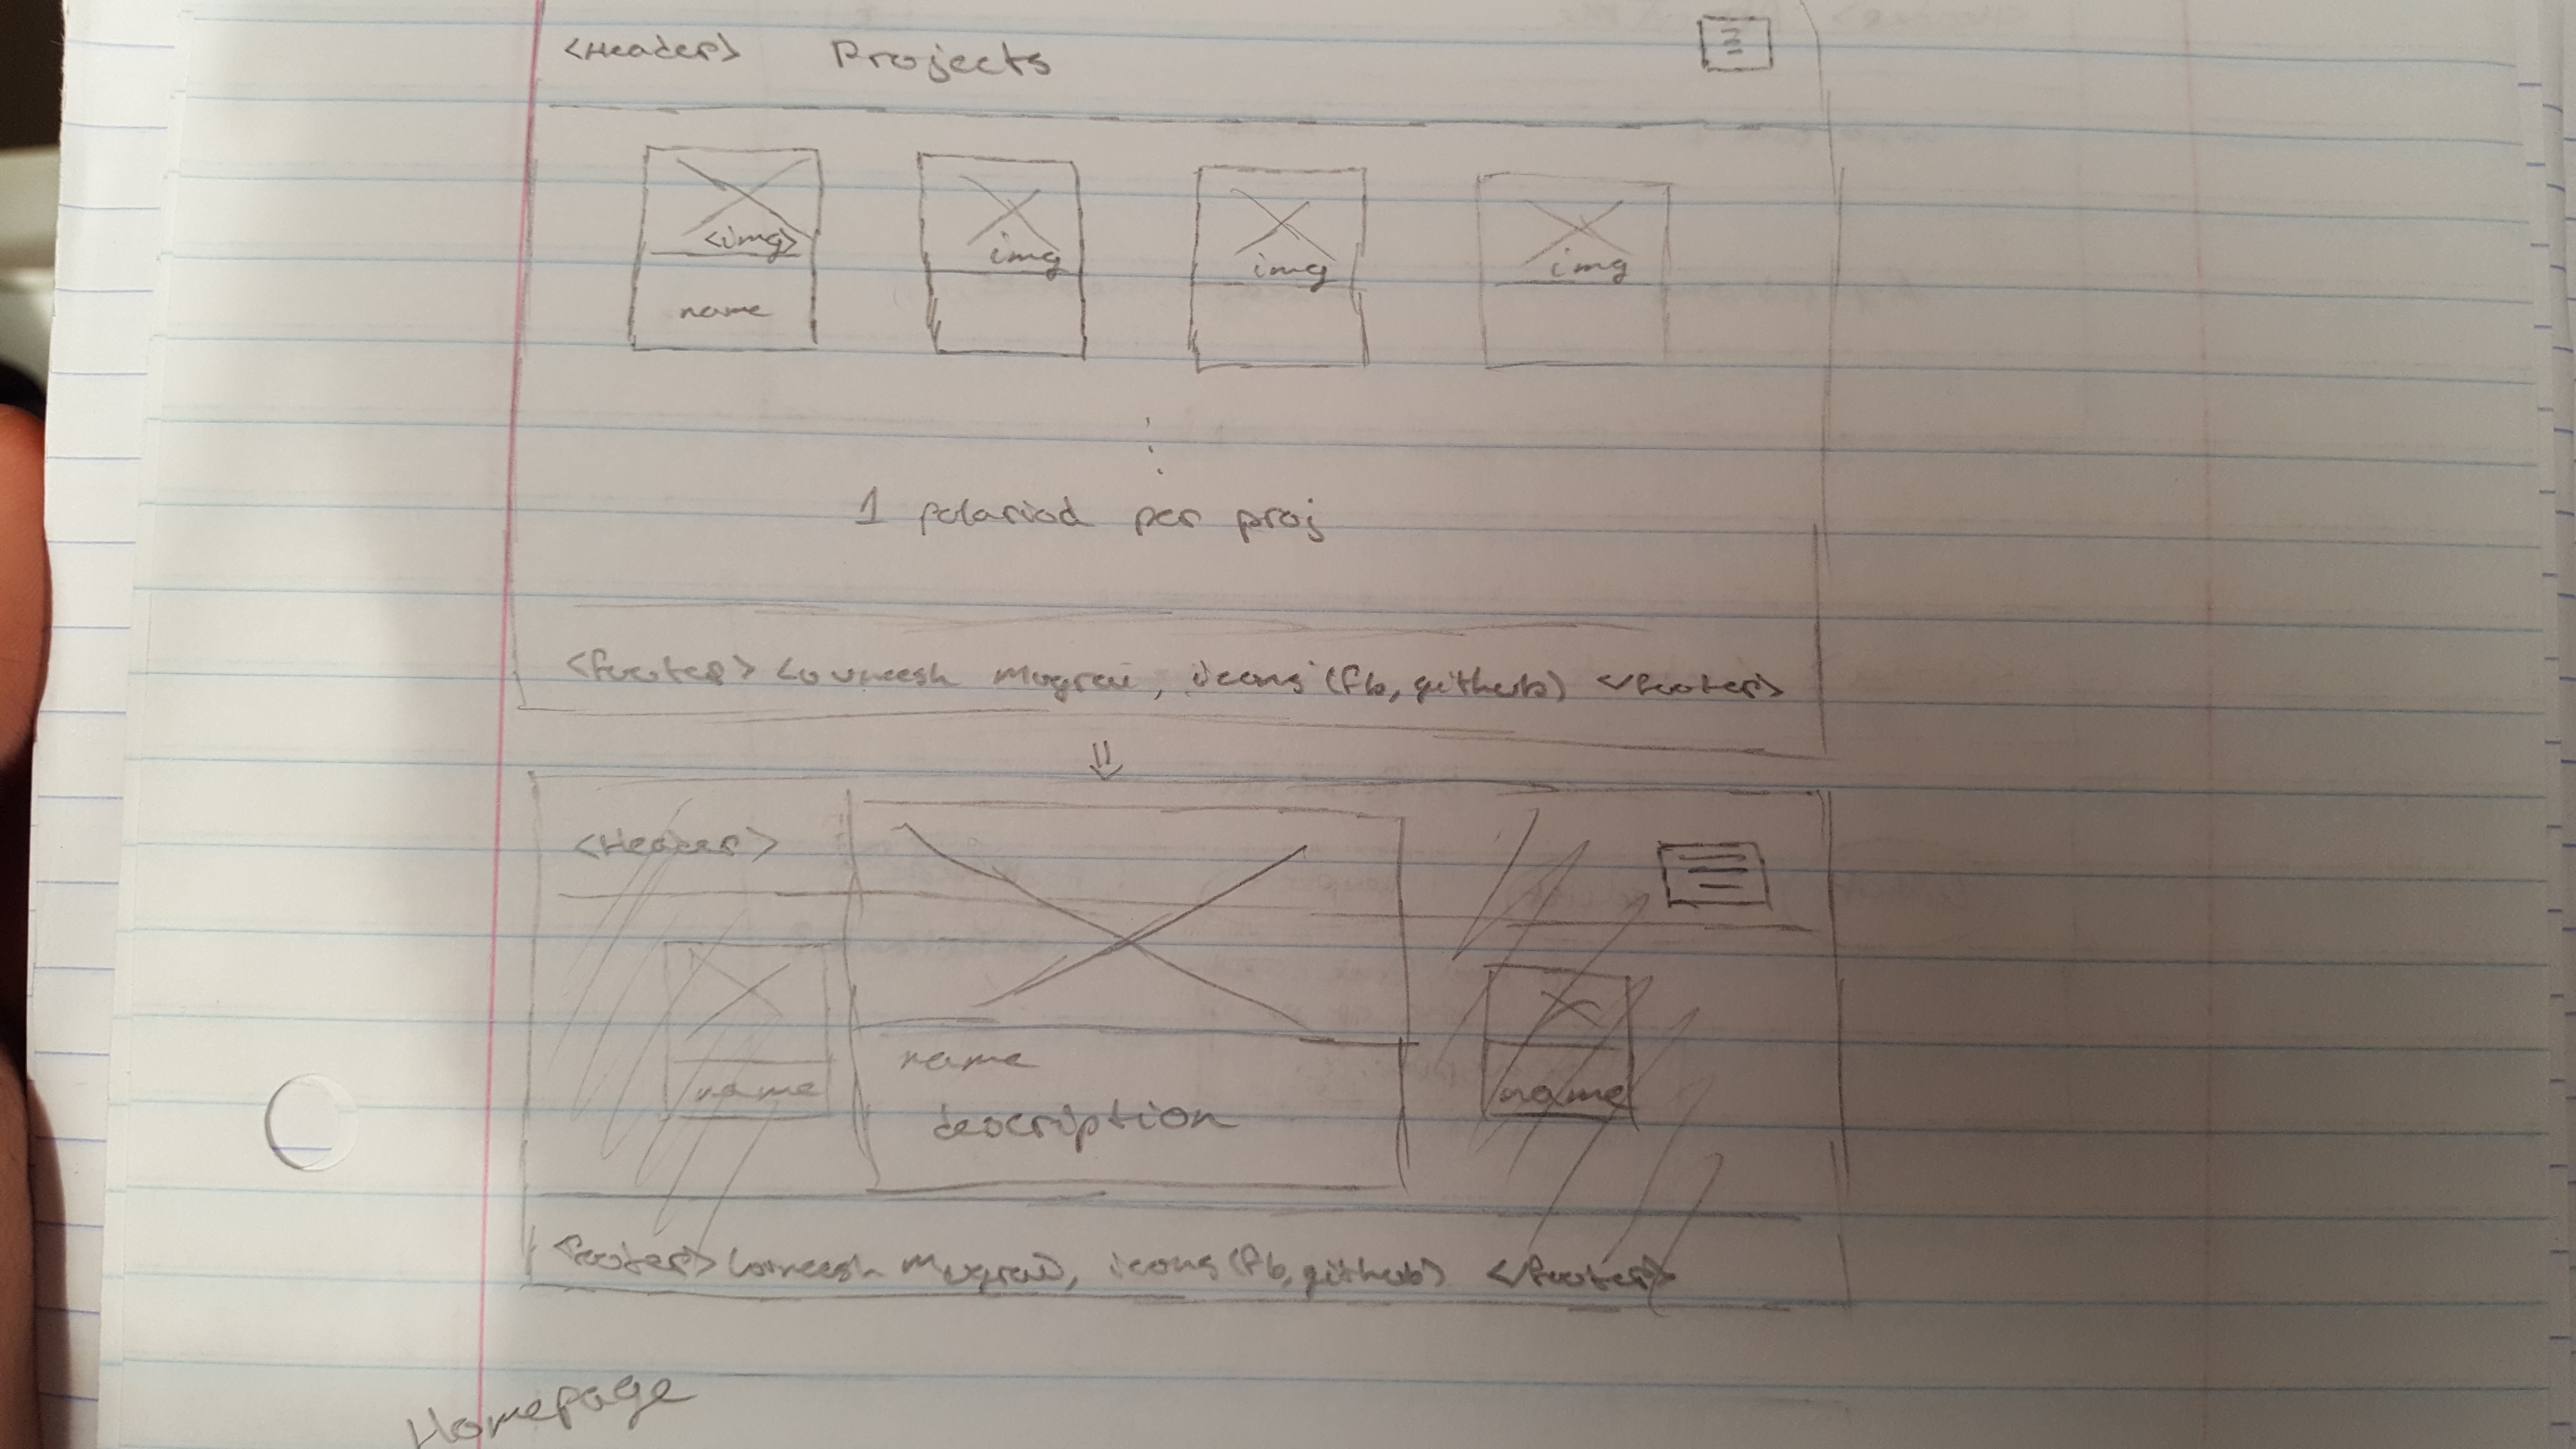 <Header> Projects
<img> img img img
name
1 polariod per proj
<footer> Lovneesh Mugrai, icons (fb, github) </footer>
<Header>
name
name
name
description
<footer> Lovneesh Mugrai, icons (fb, github) </footer>
Homepage